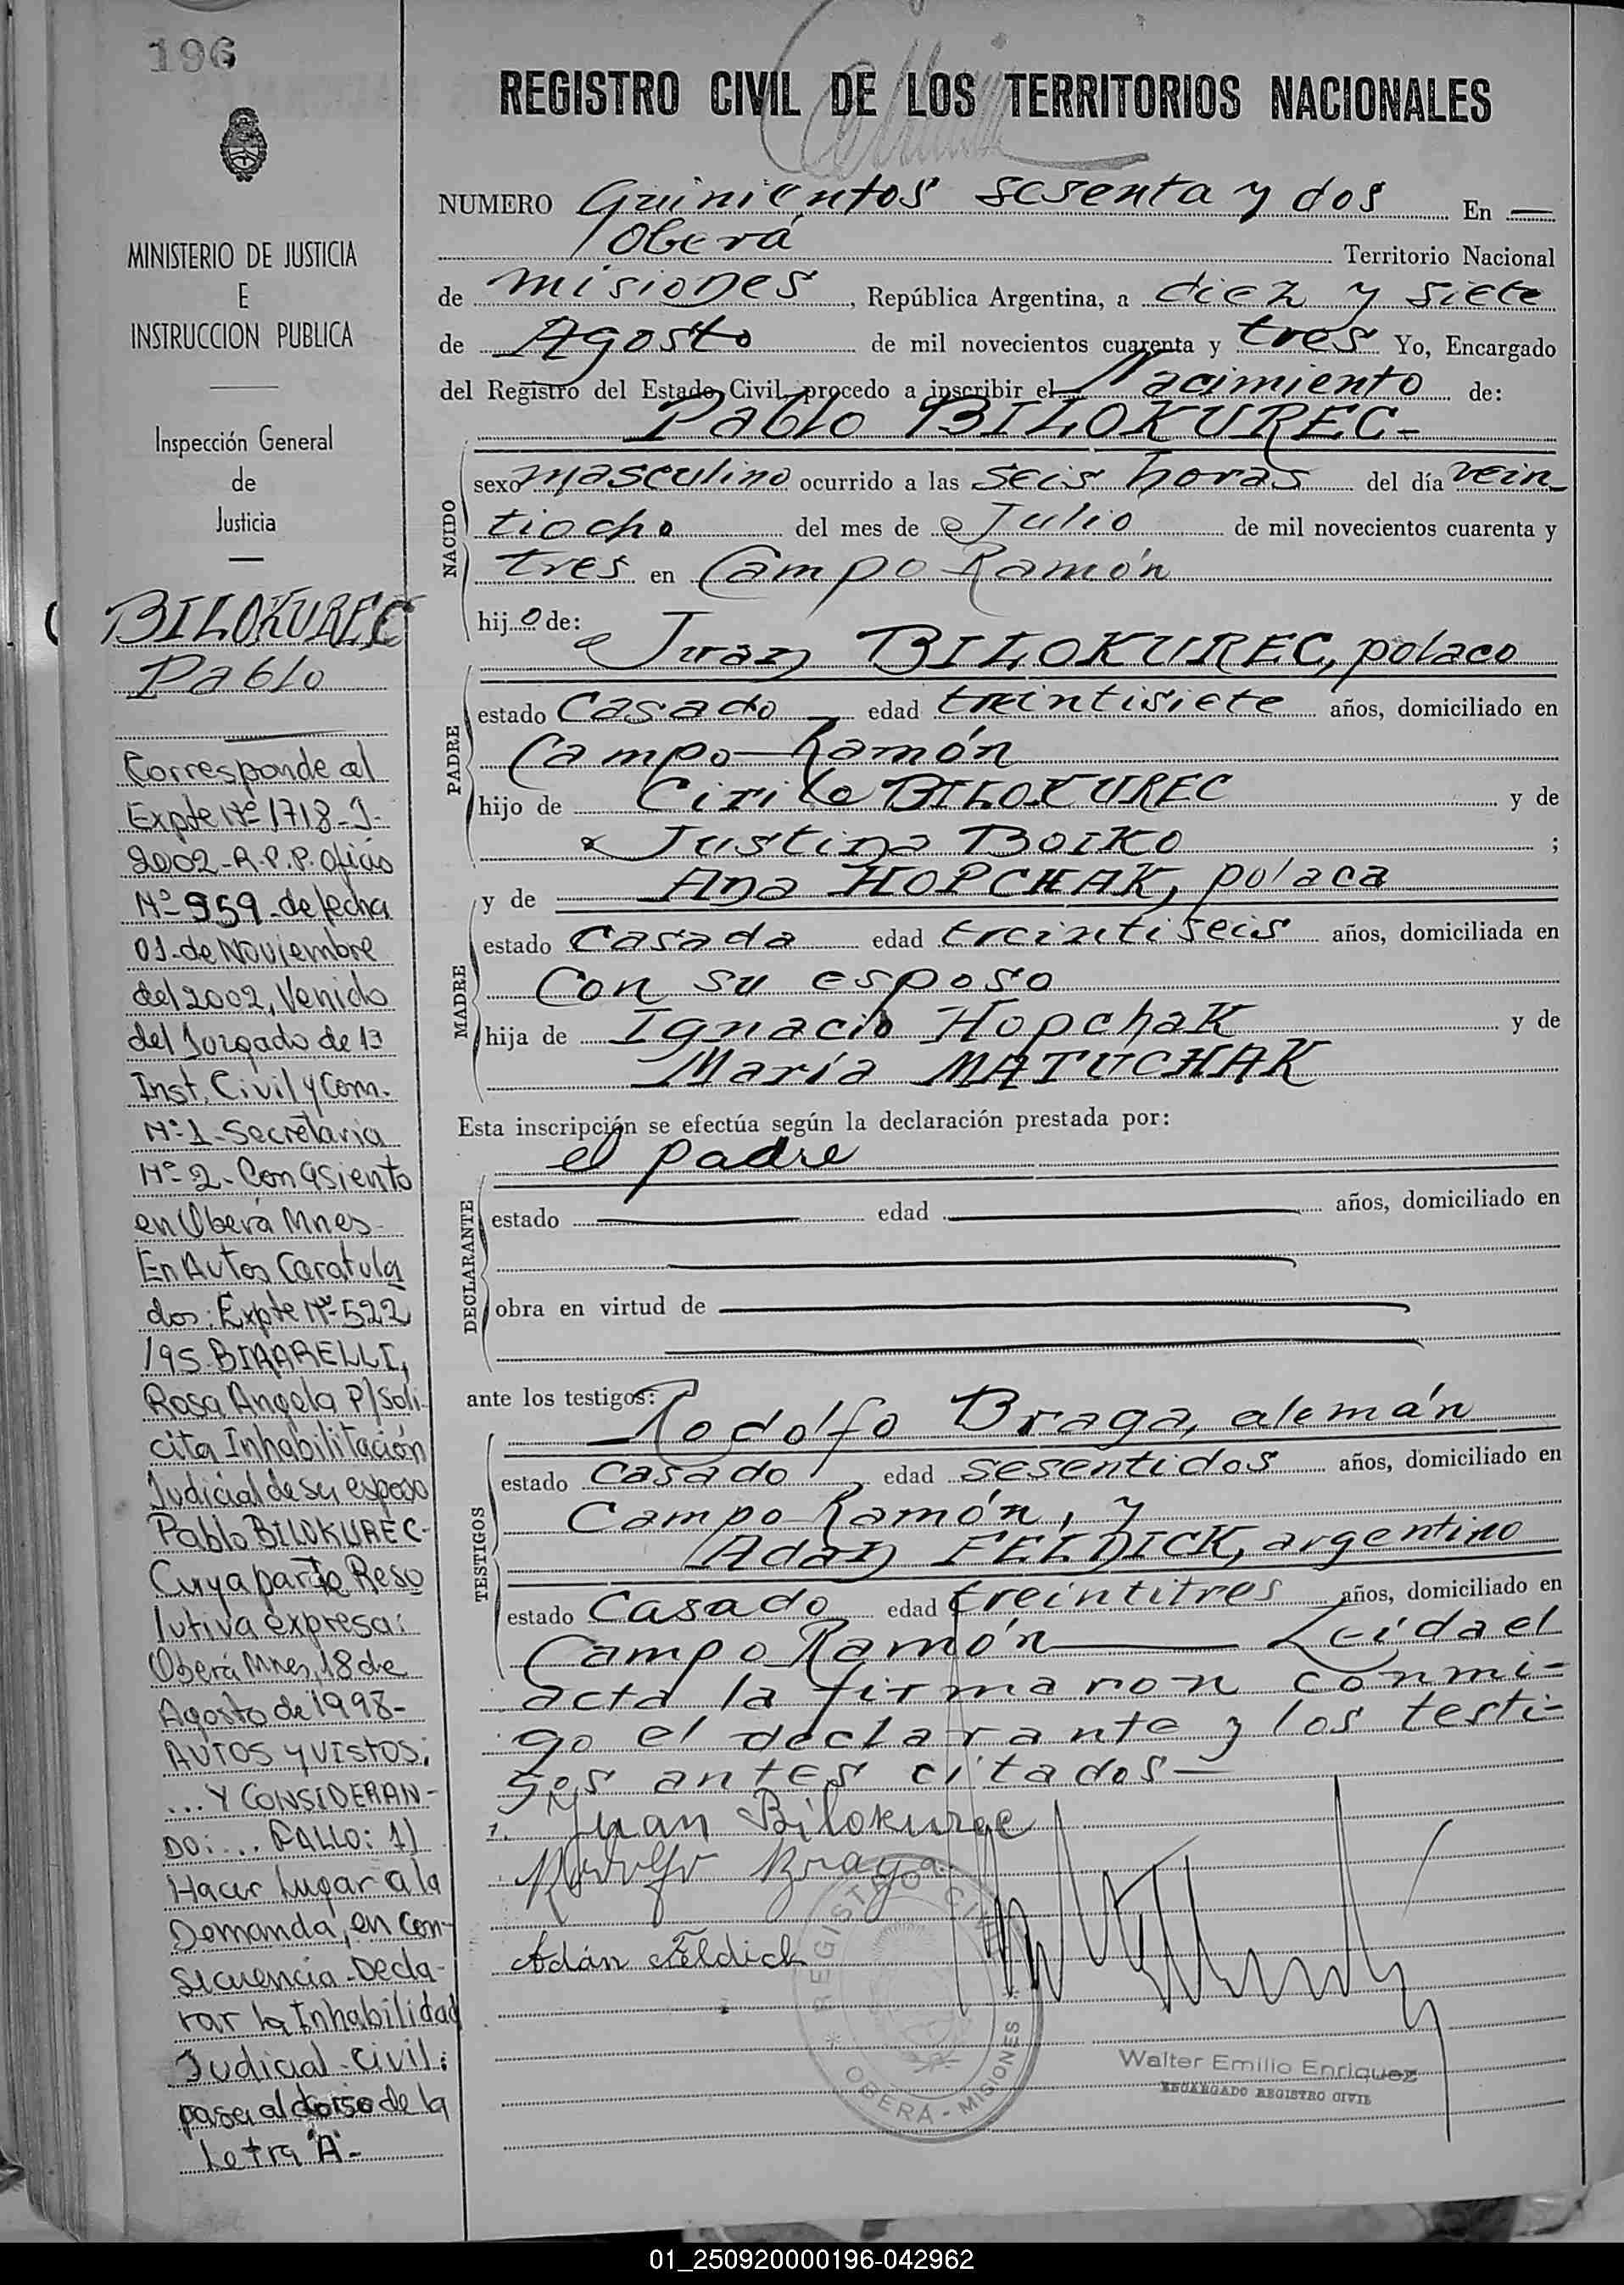 196
REGISTRO CIVIL DE LOS TERRITORIOS NACIONALES
MINISTERIO DE JUSTICIA
E
INSTRUCCION PUBLICA
Inspección General
de
Justicia
BILOKUREC
Pablo
Corresponde al
Expte Nº 1718-J-
2002-R.P.P. Oficio
Nº-959-de fecha
01-de Noviembre
del 2002, Venido
del Juzgado de 1ª
Inst. Civil y Com.
Nº 1-Secretaria
Nº-2-Con asiento
en Oberá Mnes-
En Autos Caratula
dos: Expte Nº-522
/95-BIAARELLI,
Rosa Angela P/Soli-
cita Inhabilitación
Judicial de su esposo
Pablo BILOKUREC-
Cuya parte Reso
lutiva expresa:
Oberá Mnes, 18 de
Agosto de 1998-
AUTOS y VISTOS;
...Y CONSIDERAN-
DO: ... FALLO: 1)
Hacer Lugar a la
Demanda, en Con-
secuencia-Decla-
rar la Inhabilidad
Judicial-Civil:
pasa al dorso de la
Letra "A"-
NUMERO Quinientos sesenta y dos En —
Oberá Territorio Nacional
de misiones, República Argentina, a diez y siete
de Agosto de mil novecientos cuarenta y tres Yo, Encargado
del Registro del Estado Civil, procedo a inscribir el Nacimiento de:
Pablo BILOKUREC-
NACIDO
sexo masculino ocurrido a las seis horas del día vein-
tiocho del mes de Julio de mil novecientos cuarenta y
tres en Campo Ramón
hijo de:
Juan BILOKUREC, polaco
PADRE
estado Casado edad treintisiete años, domiciliado en
Campo Ramón
hijo de Cirilo BILOKUREC y de
Justina BOIKO ;
y de Ana HOPCHAK, polaca
MADRE
estado Casada edad treintiseis años, domiciliada en
Con su esposo
hija de Ignacio Hopchak y de
María MATUCHAK
Esta inscripción se efectúa según la declaración prestada por:
el padre
DECLARANTE
estado edad años, domiciliado en
obra en virtud de
ante los testigos:
Rodolfo Braga, alemán
TESTIGOS
estado Casado, edad sesentidos años, domiciliado en
Campo Ramón, y
Adan FELDICK, argentino
estado Casado edad treintitres años, domiciliado en
Campo Ramón — Leida el
acta la firmaron conmi-
go el declarante y los testi-
gos antes citados—
Juan Bilokurec
Rodolfo Braga
Adán Feldick
REGISTRO CIVIL
OBERÁ - MISIONES
Walter Emilio Enriquez
ENCARGADO REGISTRO CIVIL
01_250920000196-042962